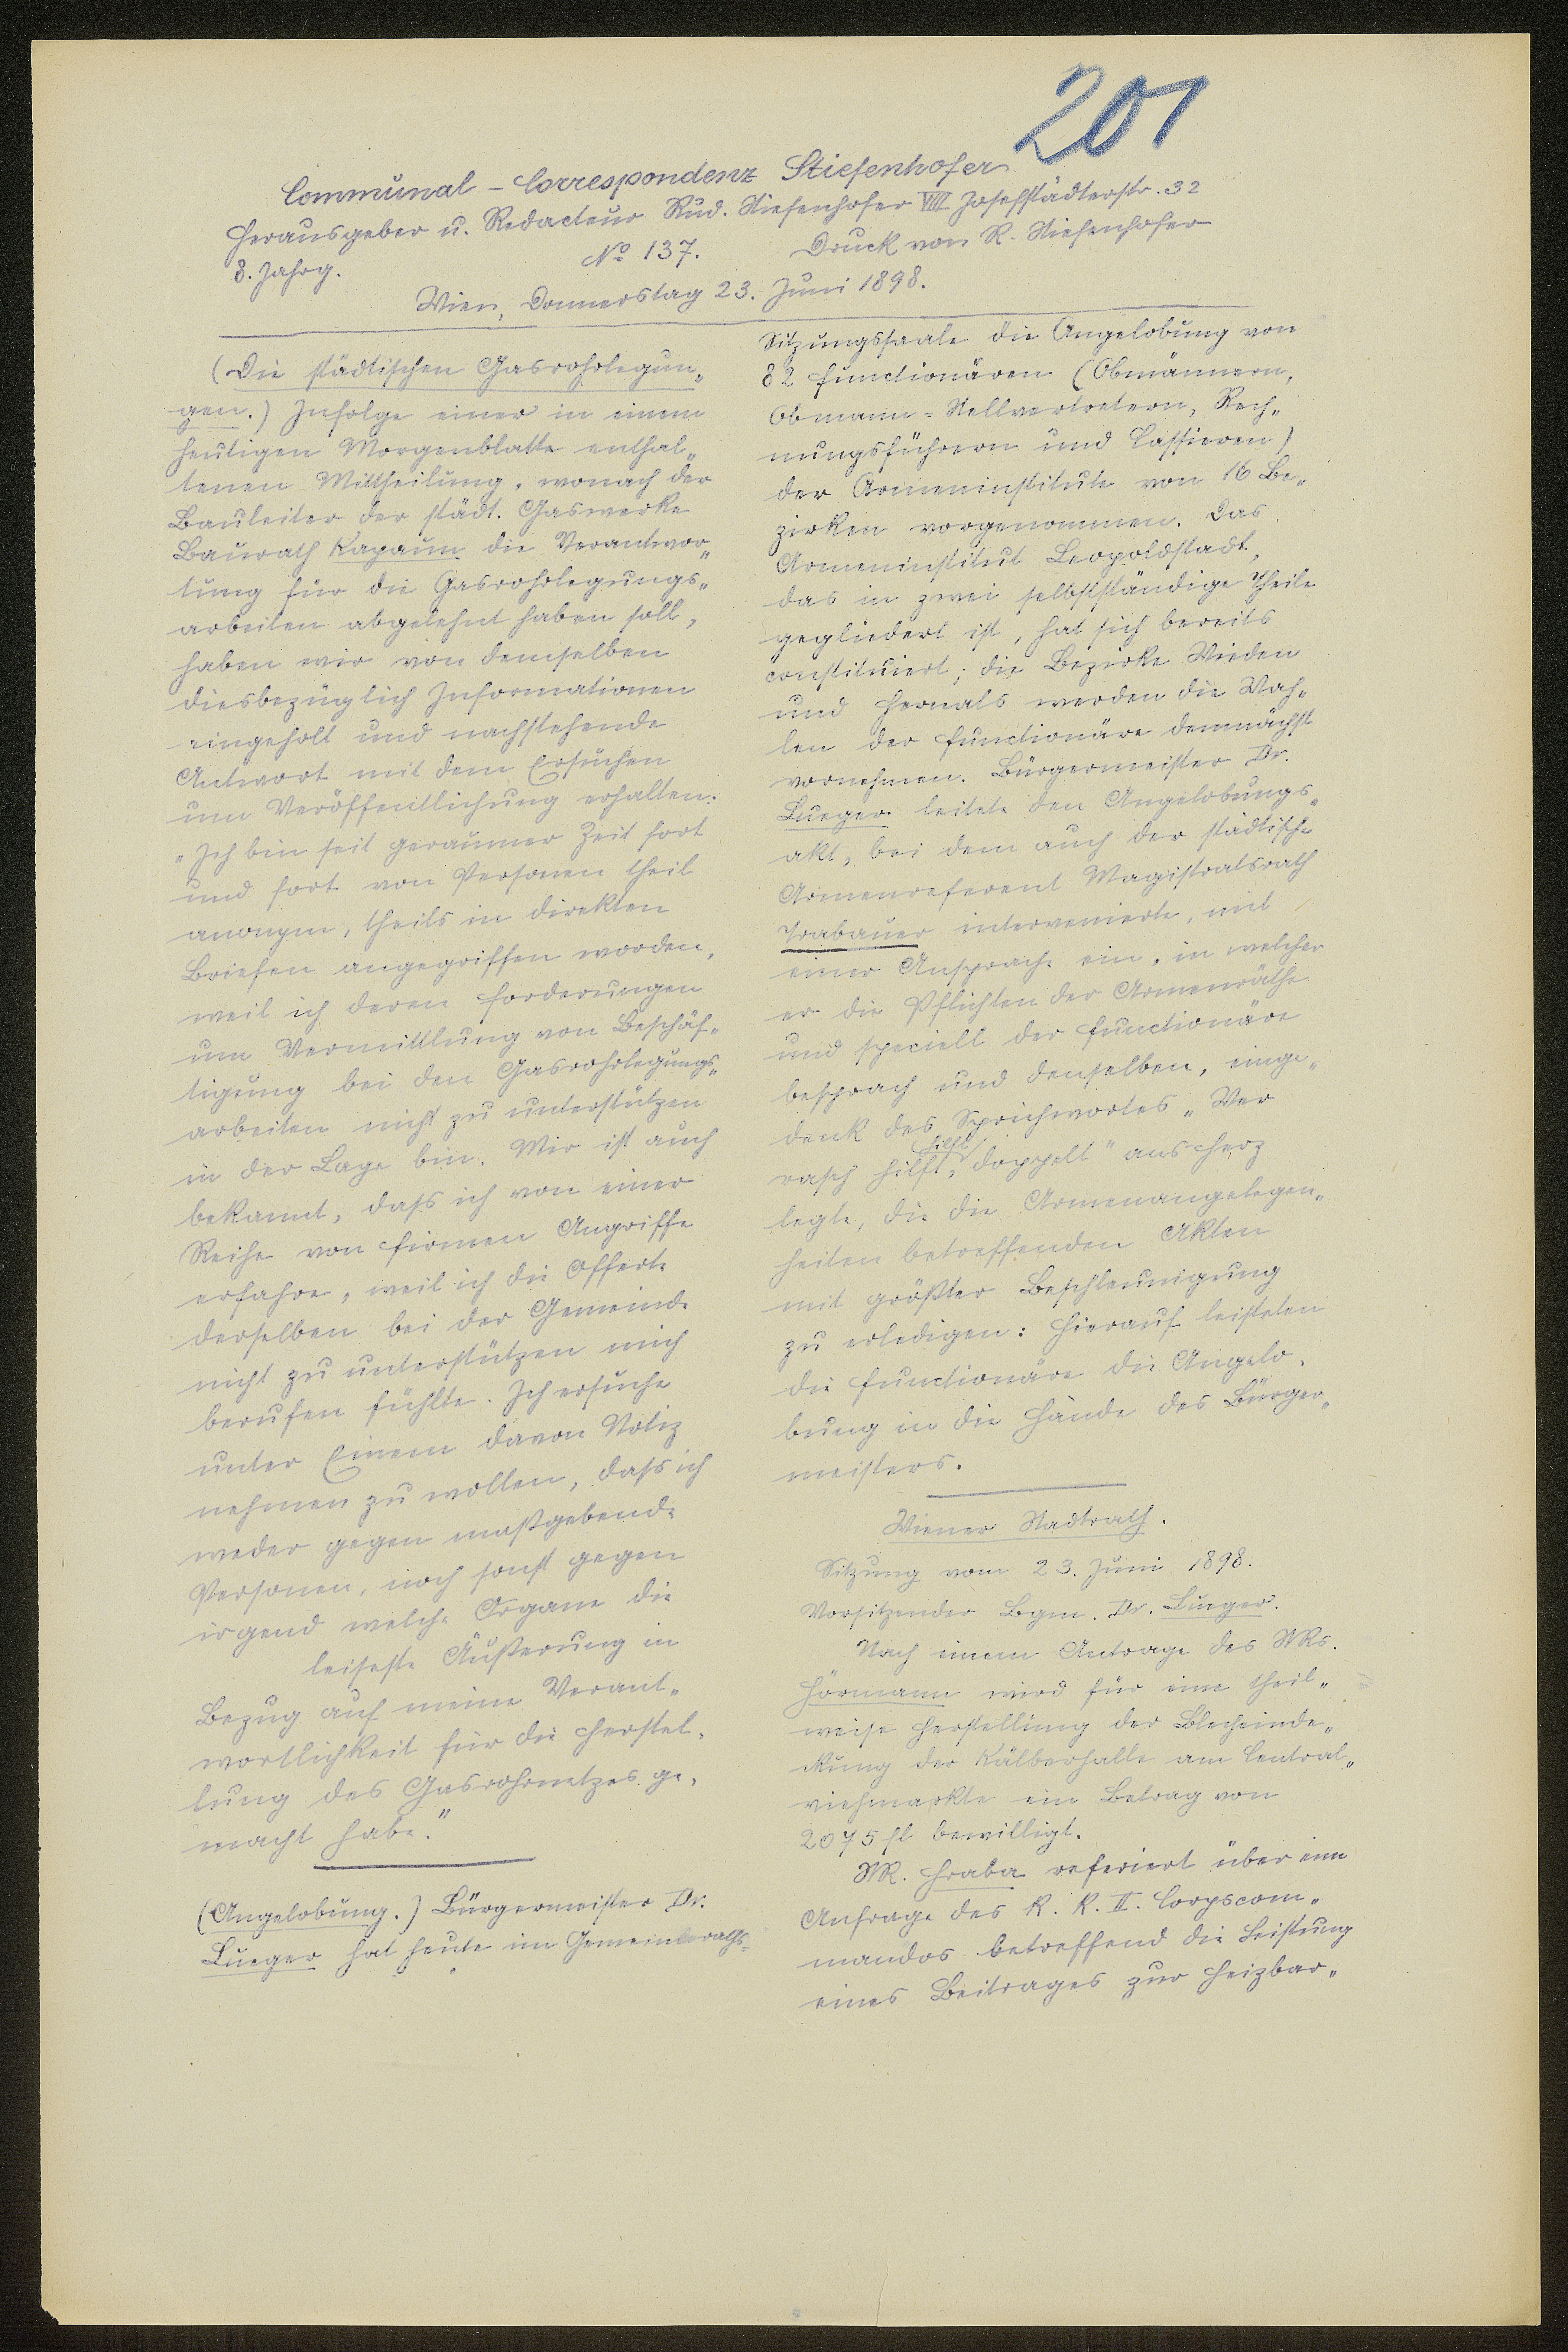 201
Communal-Correspondenz Stiefenhofer
Herausgeber u. Redacteur Rud. Stiefenhofer VIII Josefstädterstr. 32
8. Jahrg. No 137. Druck von R. Stiefenhofer
Wien, Donnerstag 23. Juni 1898.
(Die städtischen Gasrohrlegun„
gen.) Infolge einer in einem
heutigen Morgenblatte enthal„
tenen Mittheilung, wonach der
Bauleiter der städt. Gaswerke
Baurath Kapaun die Verantwor„
tung für die Gasrohrlegungs„
arbeiten abgelehnt haben soll,
haben wir von demselben
diesbezüglich Informationen
eingeholt und nachstehende
Antwort mit dem Ersuchen
um Veröffentlichung erhalten:
„Ich bin seit geraumer Zeit fort
und fort von Personen theil
anonym, theils in direkten
Briefen angegriffen worden,
weil ich deren Forderungen
um Vermittlung von Beschäf„
tigung bei den Gasrohrlegungs„
arbeiten nicht zu unterstützen
in der Lage bin. Mir ist auch
bekannt, dass ich von einer
Reihe von Firmen Angriffe
erfahre, weil ich die Offerte
derselben bei der Gemeinde
nicht zu unterstützen mich
berufen fühlte. Ich ersuche
unter Einem davon Notiz
nehmen zu wollen, dass ich
weder gegen maßgebende
Personen, noch sonst gegen
irgend welche Organe die
leiseste Äußerung in
Bezug auf meine Verant„
wortlichkeit für die Herstel„
lung des Gasrohrnetzes ge„
macht habe."
(Angelobung.) Bürgermeister Dr.
Lueger hat heute im Gemeinderaths-
Sitzungssaale die Angelobung von
82 Functionären (Obmännern,
Obmann-Stellvertretern, Rech„
nungsführern und Cassieren)
der Armeninstitute von 16 Be„
zirken vorgenommen. Das
Armeninstitut Leopoldstadt,
das in zwei selbstständige Theile
gegliedert ist, hat sich bereits
constituiert; die Bezirke Wieden
und Hernals werden die Wah„
len der Functionäre demnächst
vornehmen. Bürgermeister Dr.
Lueger leitete den Angelobungs„
akt, bei dem auch der städtische
Armenreferent Magistratsrath
Trabauer intervenierte, mit
einer Ansprache ein, in welcher
er die Pflichten der Armenräthe
und speciell der Functionäre
besprach und denselben, einge„
denk des Sprichwortes „Wer
rasch hilft, hilft doppelt" ans Herz
legte, die die Armenangelegen„
heiten betreffenden Akten
mit größter Beschleunigung
zu erledigen: Hierauf leisteten
die Functionäre die Angelo„
bung in die Hände des Bürger„
meisters.
Wiener Stadtrath.
Sitzung vom 23. Juni 1898.
Vorsitzender Bgm. Dr. Lueger.
Nach einem Antrage des StRs.
Hörmann wird für eine theil„
weise Herstellung der Blecheinde„
ckung der Kälberhalle am Central„
viehmarkte ein Betrag von
2075 fl bewilligt.
StR. Hraba referiert über eine
Anfrage des k. k. II. Corpscom„
mandos betreffend die Leistung
eines Beitrages zur Heizbar„